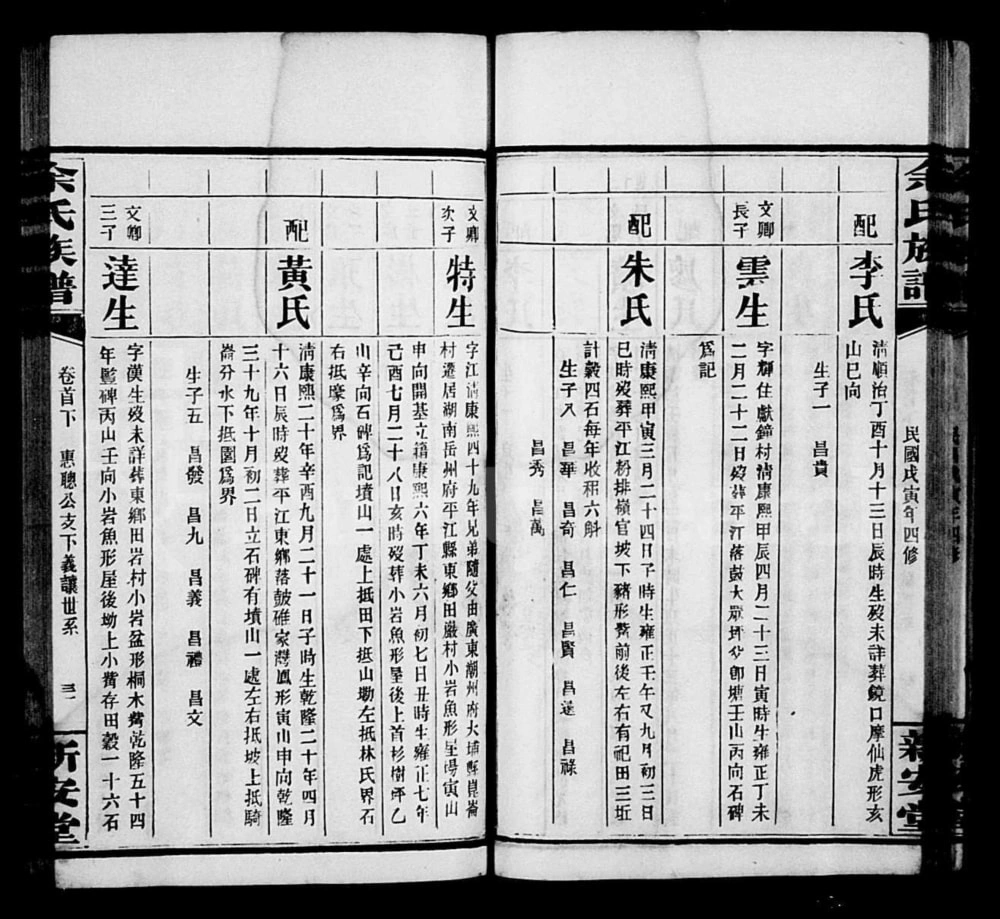 余氏族譜
民國戊寅年四修
新安堂
配
李氏
清順治丁酉十月十三日辰時生歿未詳葬鏡口摩仙虎形亥
山巳向
生子一 昌貴
文卿
長子
雲生
字輝住獻鐘村清康熙甲辰四月二十三日寅時生雍正丁未
二月二十二日歿葬平江落鼓大眾坪 塘壬山丙向石碑
為記
配
朱氏
清康熙甲寅三月二十四日子時生雍正壬午又九月初三日
巳時歿葬平江粉排嶺官坡下豬形 前後左右有祀田三坵
計穀四石每年收租六斛
生子八 昌華 昌奇 昌仁 昌賢 昌達 昌祿
昌秀 昌萬
文卿
次子
特生
字江清康熙四十九年兄弟隨父由廣東潮州府大埔縣崑崙
村遷居湖南岳州府平江縣東鄉田巖村小岩魚形 寅山
申向開基立籍康熙六年丁未六月初七日丑時生雍正七年
己酉七月二十八日亥時歿葬小岩魚形屋後上首杉樹坪乙
山辛向石碑為記墳山一處上抵田下抵山塝左抵林氏界石
右抵壕為界
配
黃氏
清康熙二十年辛酉九月二十一日子時生乾隆二十年四月
十六日辰時歿葬平江東鄉落鼓碓家灣鳳形寅山申向乾隆
三十九年十月初二日立石碑有墳山一處左右抵坡上抵騎
崙分水下抵園為界
生子五 昌發 昌九 昌義 昌禮 昌文
文卿
三子
達生
字漢生歿未詳葬東鄉田岩村小岩盆形桐木 乾隆五十四
年豎碑丙山壬向小岩魚形屋後坳上小 存田穀一十六石
余氏族譜
卷首下 惠聰公支下義讓世系
新安堂